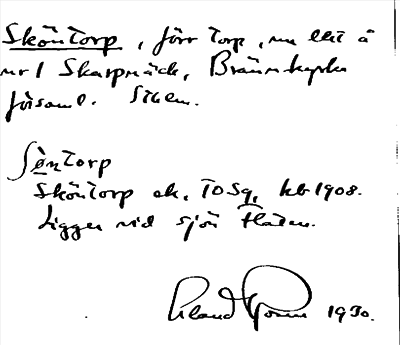 Sköntorp, förr torp, nu lht å
nr 1 Skarpnäck, Brännkyrka
församl. Sthlm.
Söntorp
Sköntorp ek. TOSq, kb 1908.
Ligger vid sjön Flaten.
1930.